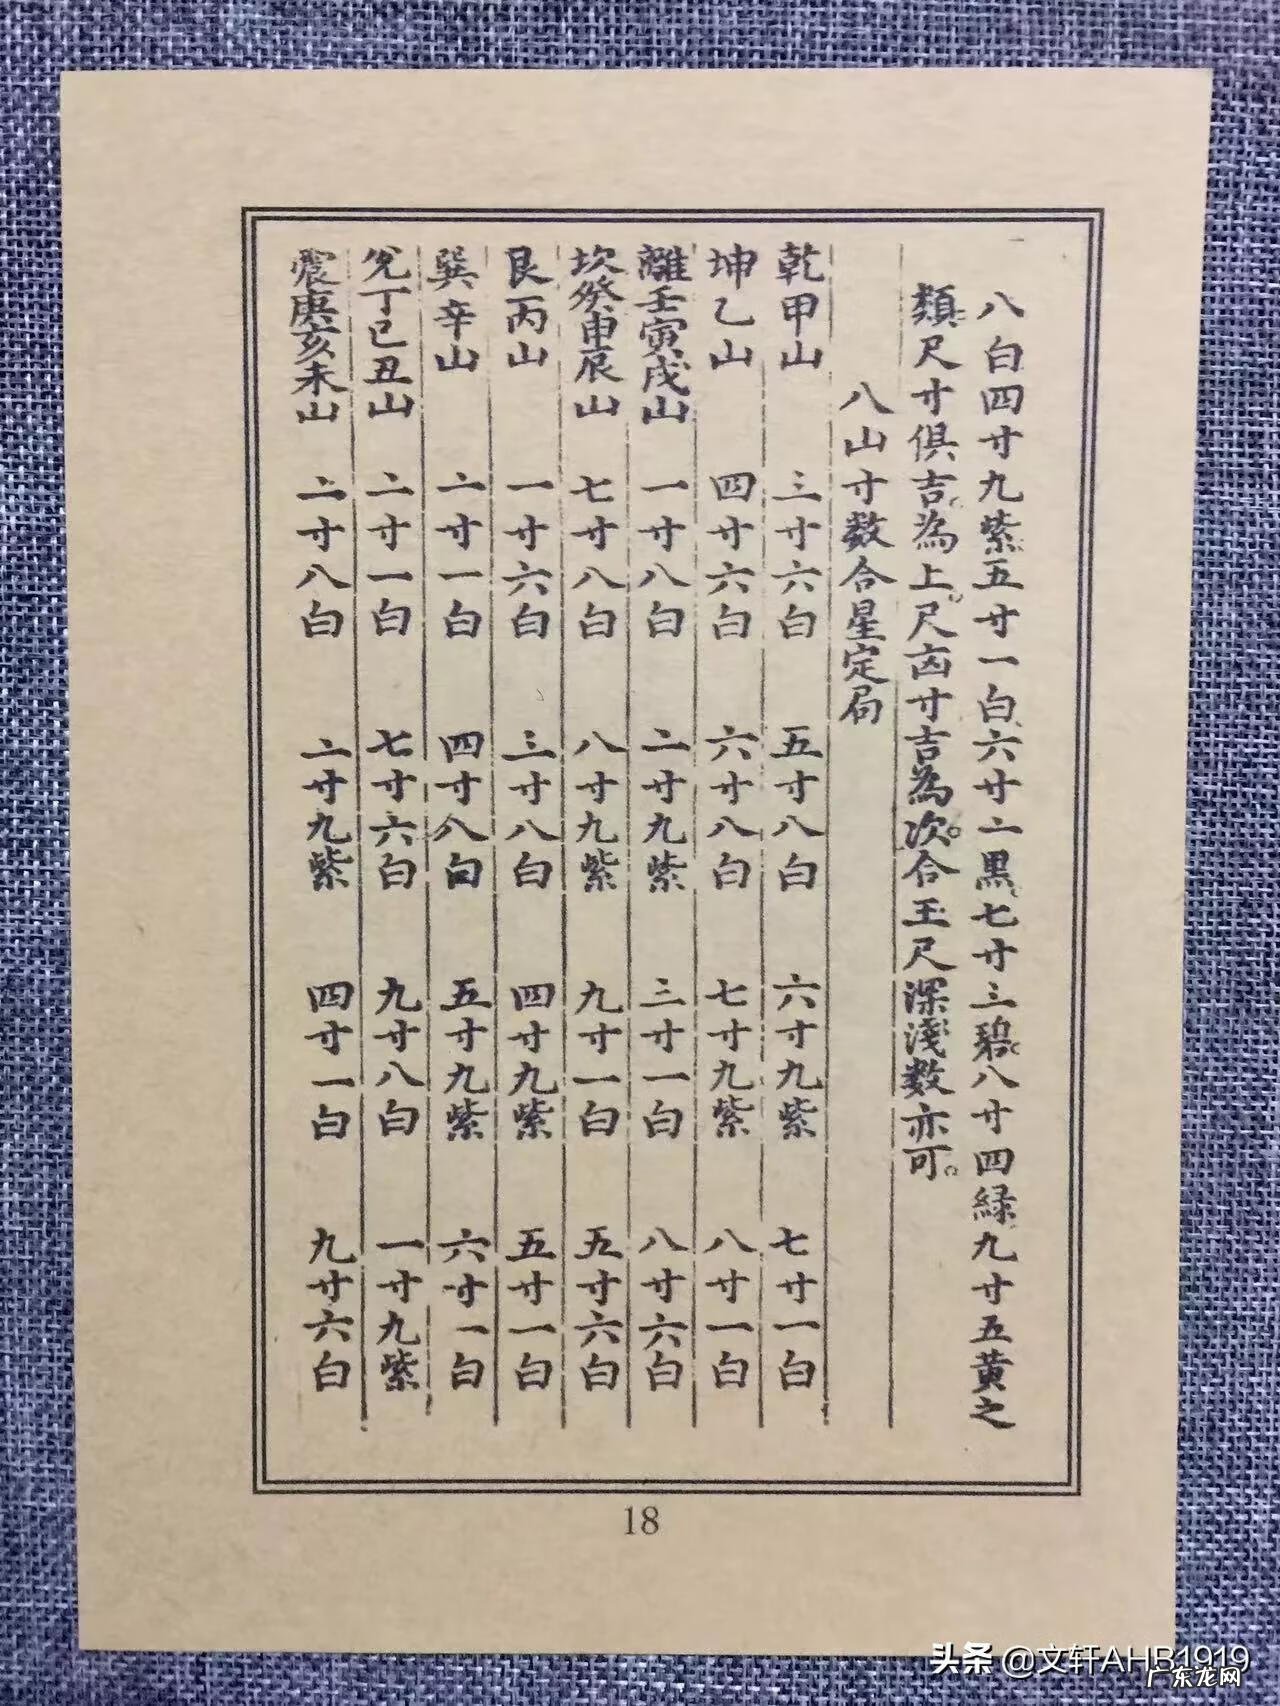 八白四寸九紫五寸一白六寸二黑七寸三碧八寸四緑九寸五黃之
類尺寸俱吉為上尺凶寸吉為次合玉尺深淺数亦可
八山寸数合星定局
乾甲山 三寸六白 五寸八白 六寸九紫 七寸一白
坤乙山 四寸六白 六寸八白 七寸九紫 八寸一白
離壬寅戌山 一寸八白 二寸九紫 三寸一白 八寸六白
坎癸申辰山 七寸八白 八寸九紫 九寸一白 五寸六白
艮丙山 一寸六白 三寸八白 四寸九紫 五寸一白
巽辛山 二寸一白 四寸八白 五寸九紫 六寸一白
兌丁巳丑山 二寸一白 七寸六白 九寸八白 一寸九紫
震庚亥未山 二寸八白 二寸九紫 四寸一白 九寸六白
18
头条 @文轩AHB1919
广东龙网